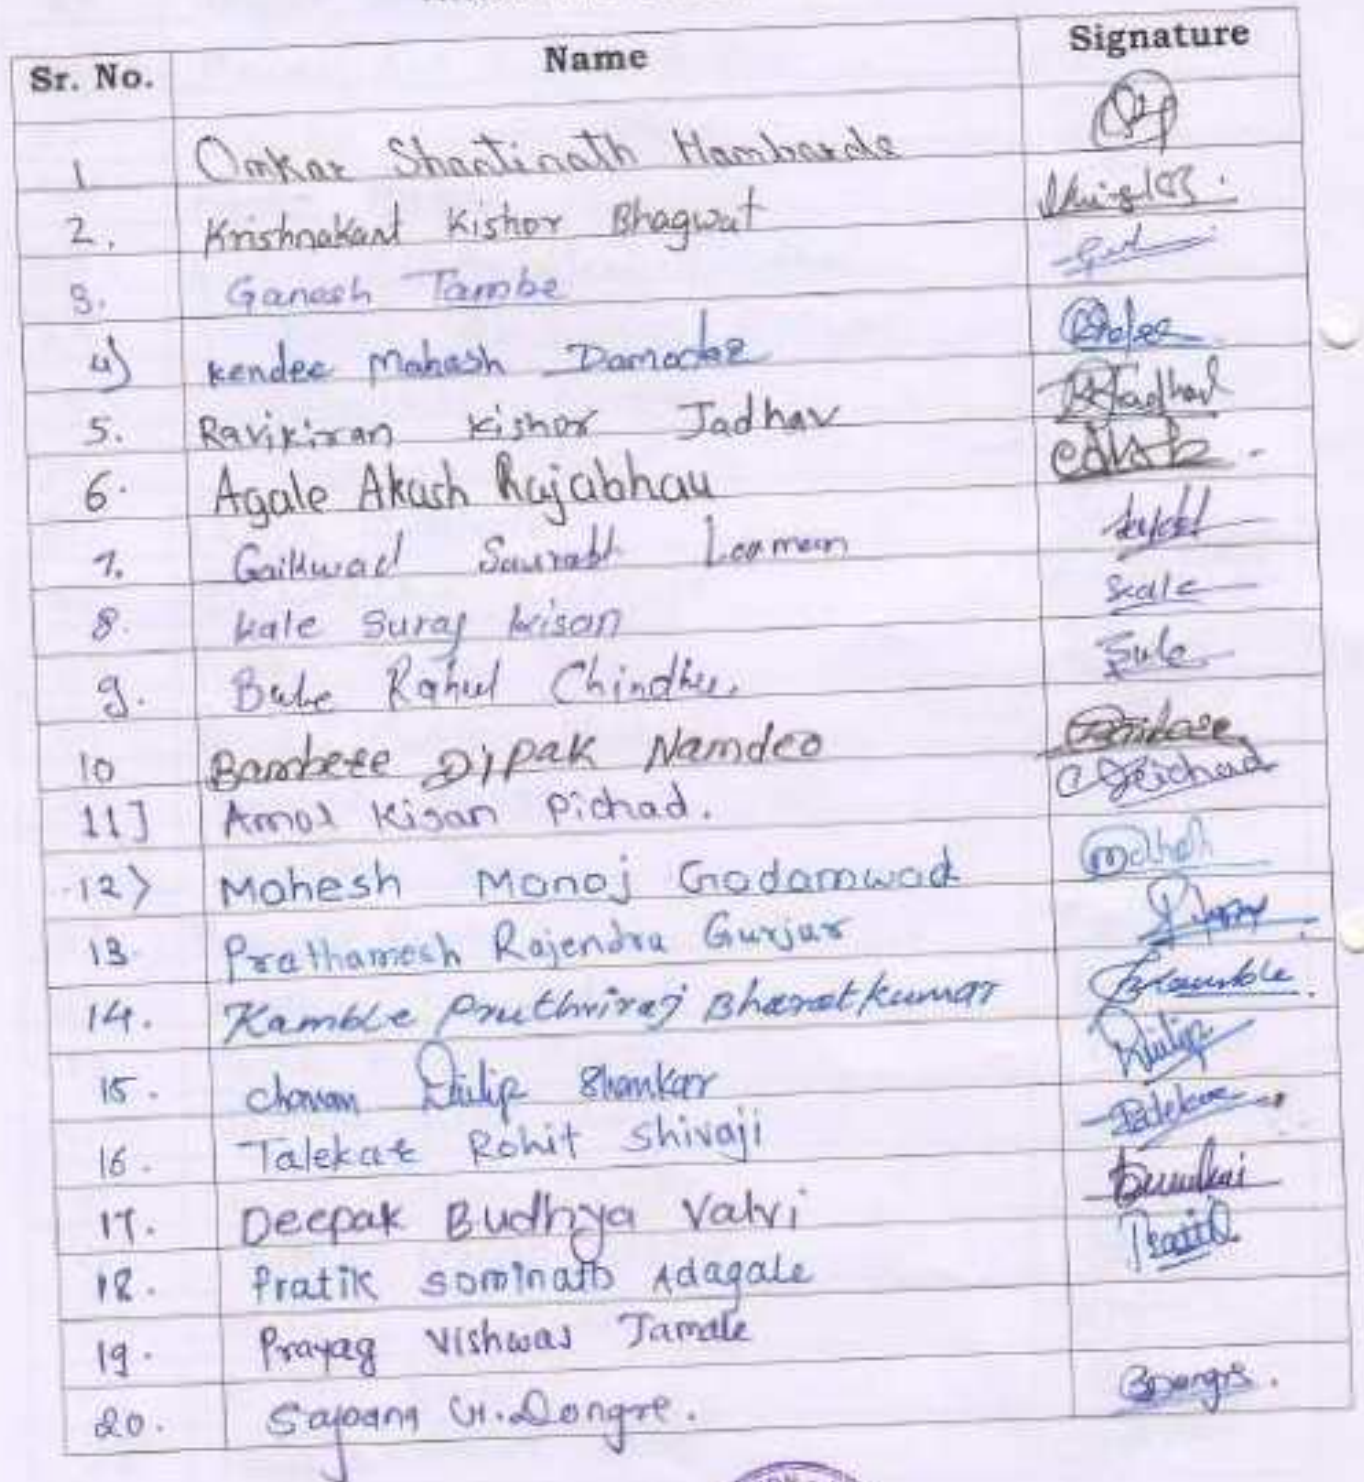 Sr. No. Name Signature
1 Omkar Shantinath Hambarde
2. Krishnakant Kishor Bhagwat
3. Ganesh Tambe
4) Kendre Mahesh Damodar
5. Ravikiran Kishor Jadhav RKJadhav
6. Agale Akash Rajabhau
7. Gaikwad Saurabh Laxman
8. Kale Suraj Kisan Skale
9. Bule Rahul Chindhu.
10 Bambere Dipak Namdeo
11] Amol Kisan Pichad.
12) Mahesh Manoj Godamwad
13. Prathamesh Rajendra Gurjar
14. Kamble Pruthviraj Bharatkumar
15. Chavan Dilip Shankar Dilip
16. Talekar Rohit Shivaji
17. Deepak Budhya Valvi
18. Pratik Sominath Adagale Pratik
19. Prayag Vishwas Jamale
20. Dongre.